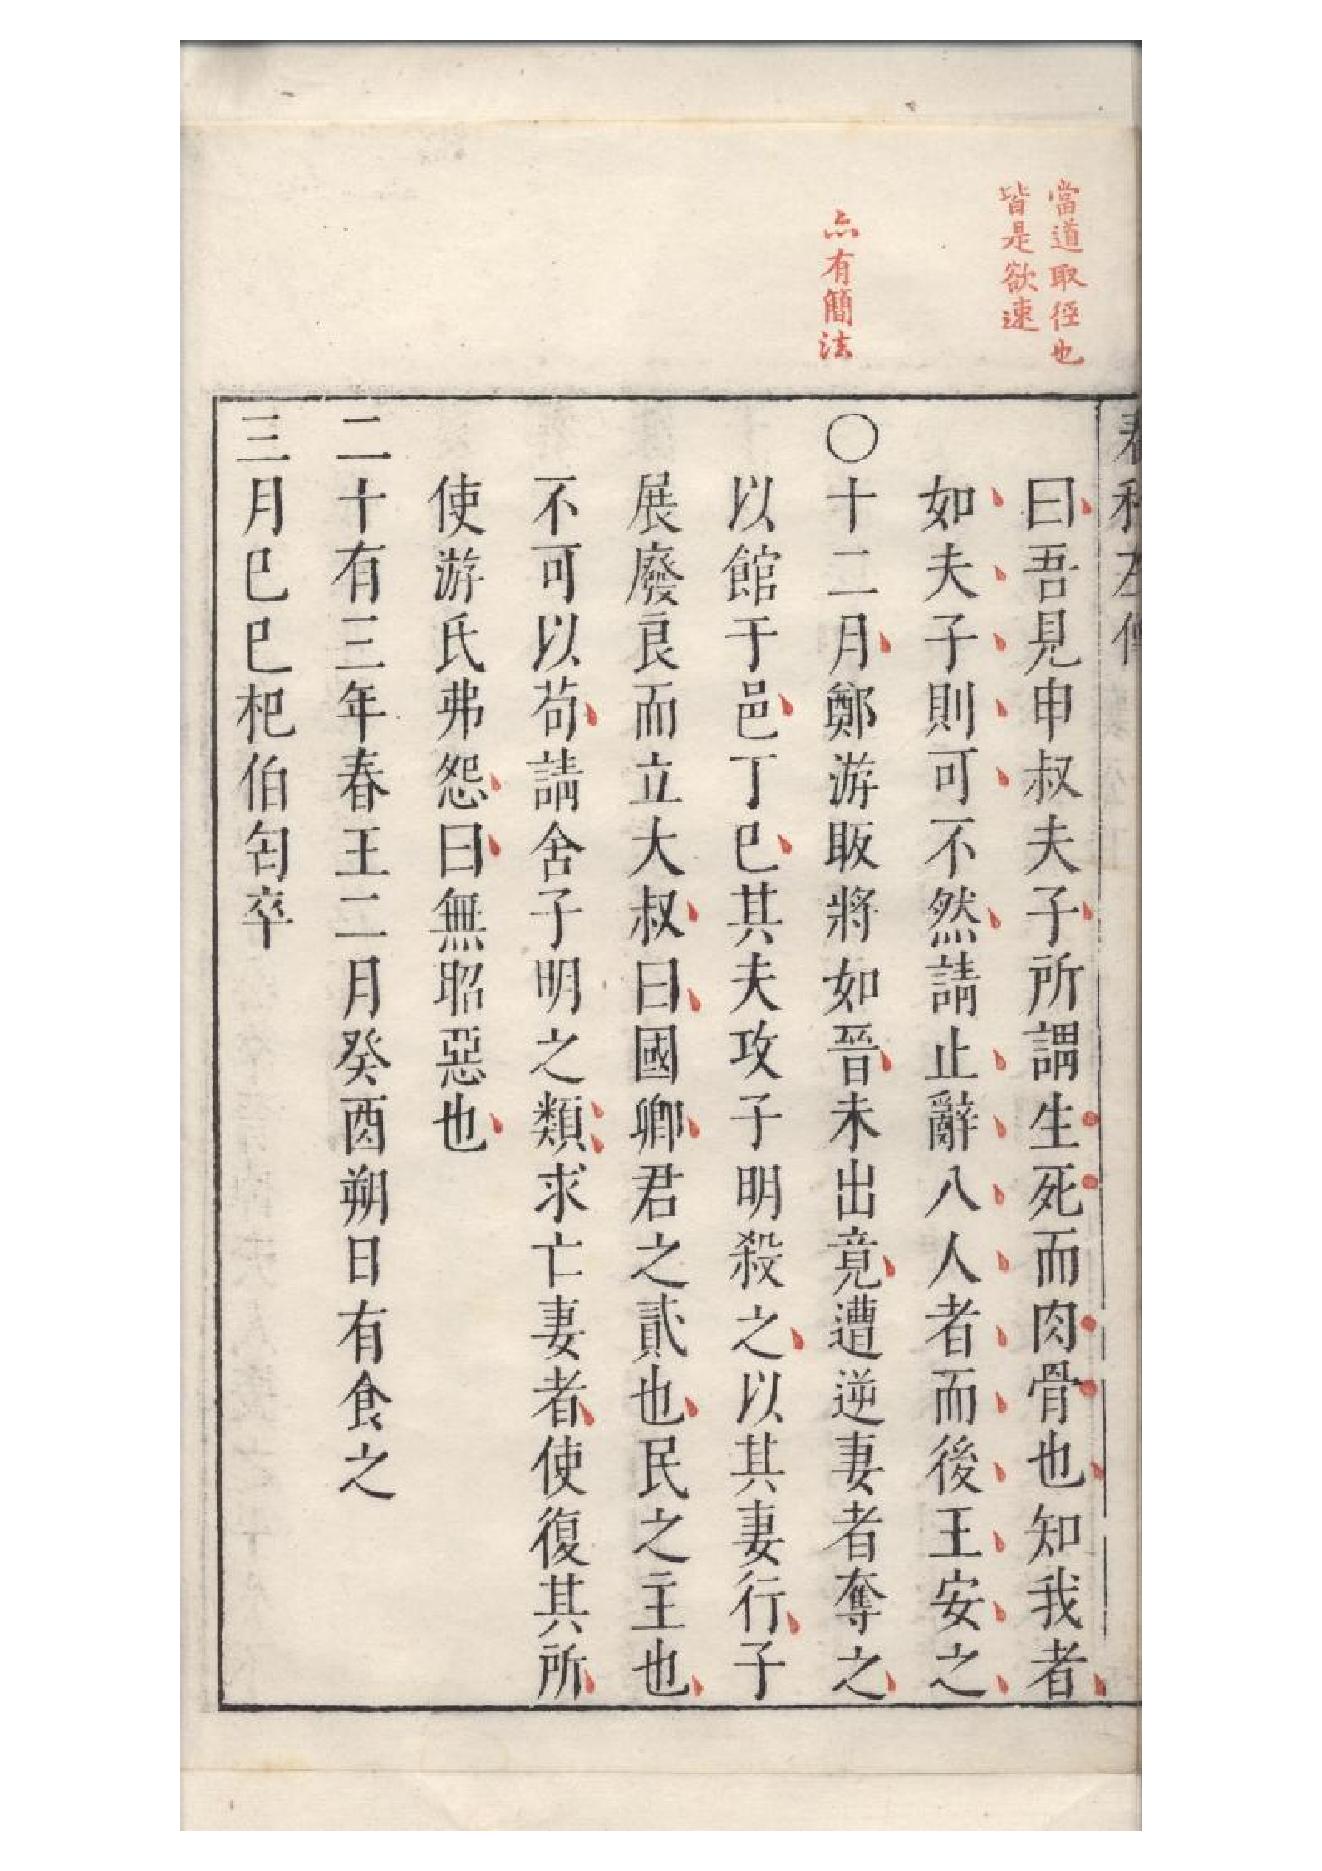 當道取徑也
皆是欲速
亦有簡法
春秋左傳
曰吾見申叔夫子所謂生死而肉骨也知我者
如夫子則可不然請止辭八人者而後王安之
〇十二月鄭游眅將如晉未出竟遭逆妻者奪之
以館于邑丁巳其夫攻子明殺之以其妻行子
展廢良而立大叔曰國卿君之貳也民之主也
不可以苟請舍子明之類求亡妻者使復其所
使游氏弗怨曰無昭惡也
二十有三年春王二月癸酉朔日有食之
三月巳巳杞伯匄卒